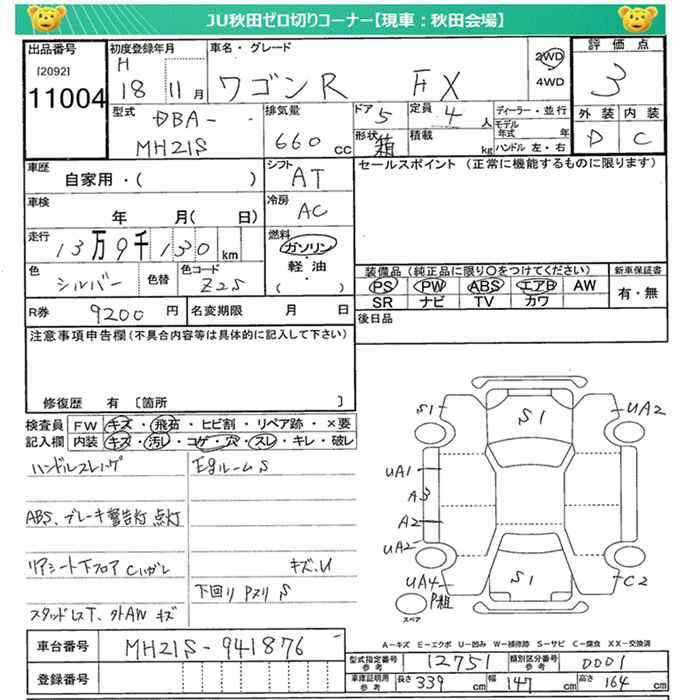 JU秋田ゼロ切りコーナー【現車：秋田会場】
出品番号
[2092]
11004
初度登録年月
H
18 11月
車名・グレード
ワゴンR FX
2WD
・
4WD
評価点
3
外装 内装
D C
型式
DBA-
MH21S
排気量
660 cc
ドア 5
形状 箱
定員 4 人
積載 kg
ディーラー・並行
モデル年式 年
ハンドル 左・右
車歴
自家用・( )
シフト
AT
セールスポイント (正常に機能するものに限ります)
車検
年 月( 日)
冷房
AC
走行
13万9千130km
燃料
ガソリン
・
軽油
・
( )
色
シルバー
色替
色コード
Z2S
装備品(純正品に限り○をつけてください)
新車保証書
PS PW ABS エアB AW
SR ナビ TV カワ
有・無
R券 9200円
名変期限 月 日
後日品
注意事項申告欄(不具合内容等は具体的に記入して下さい)
修復歴 有 [箇所 ]
検査員
記入欄
FW キズ・飛石・ヒビ割・リペア跡・×要
内装 キズ・汚レ・コゲ・穴・スレ・キレ・破レ
ハンドルスレハゲ
EgルームS
ABS、ブレーキ警告灯 点灯
リアシート下フロア
キズ、U
下回り Pヌリ S
スタッドレスT、外AW キズ
S1
S1
UA2
UA1
A3
A2
UA2
UA4
P粗
S1
C2
スペア
A－キズ E－エクボ U－凹み W－補修跡 S－サビ C－腐食 XX－交換済
車台番号 MH21S-941876
登録番号
型式指定番号
参考
12751
類別区分番号
参考
0001
車庫証明用
参考
長さ 339 cm
幅 147 cm
高さ 164 cm